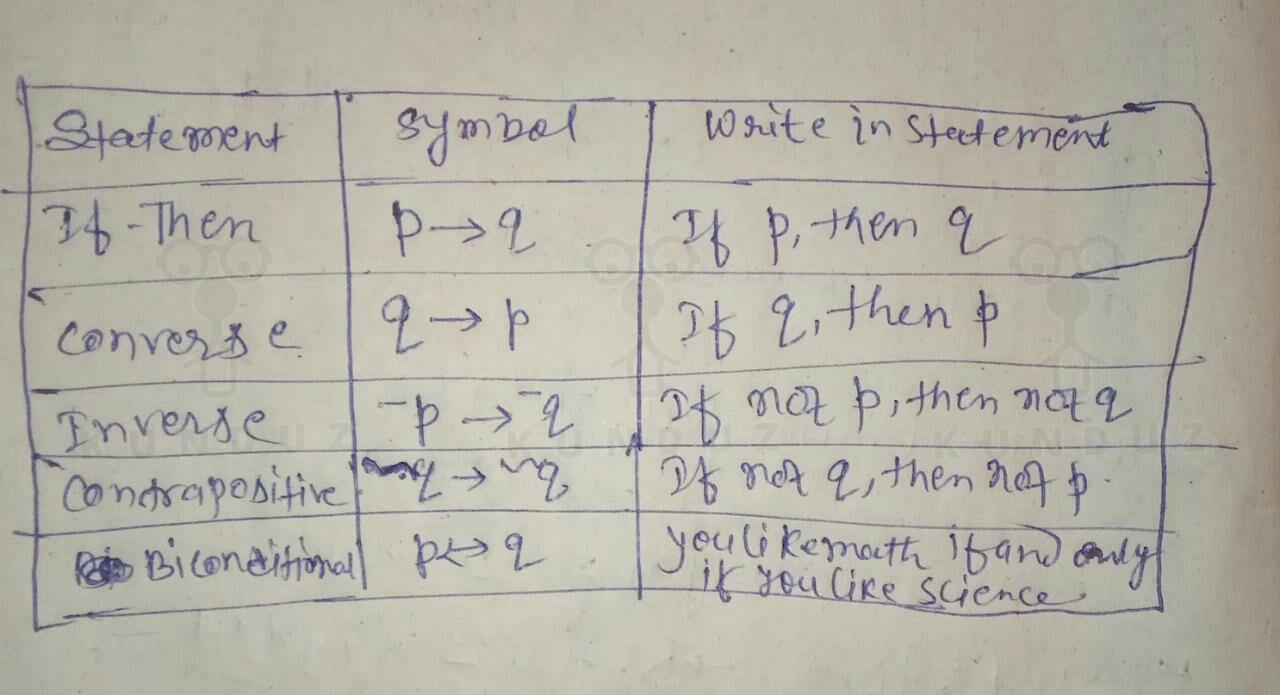 Statement symbol Write in Statement
If-Then p→q If p, then q
converse q→p If q, then p
Inverse -p→-q If not p, then not q
Contrapositive ~q→~q If not q, then not p.
Biconditional p↔q you like math if and only
if you like science
KUNDUZ KUNDUZ KUNDUZ